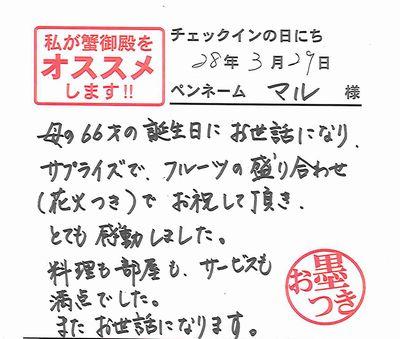 私が蟹御殿を
オススメ
します!!
チェックインの日にち
28年 3月 29日
ペンネーム マル 様
母の66才の誕生日に お世話になり、
サプライズで、フルーツの盛り合わせ
(花火つき)で お祝して頂き、
とても 感動しました。
料理も部屋も、サービスも
満点でした。
また お世話になります。
お墨つき